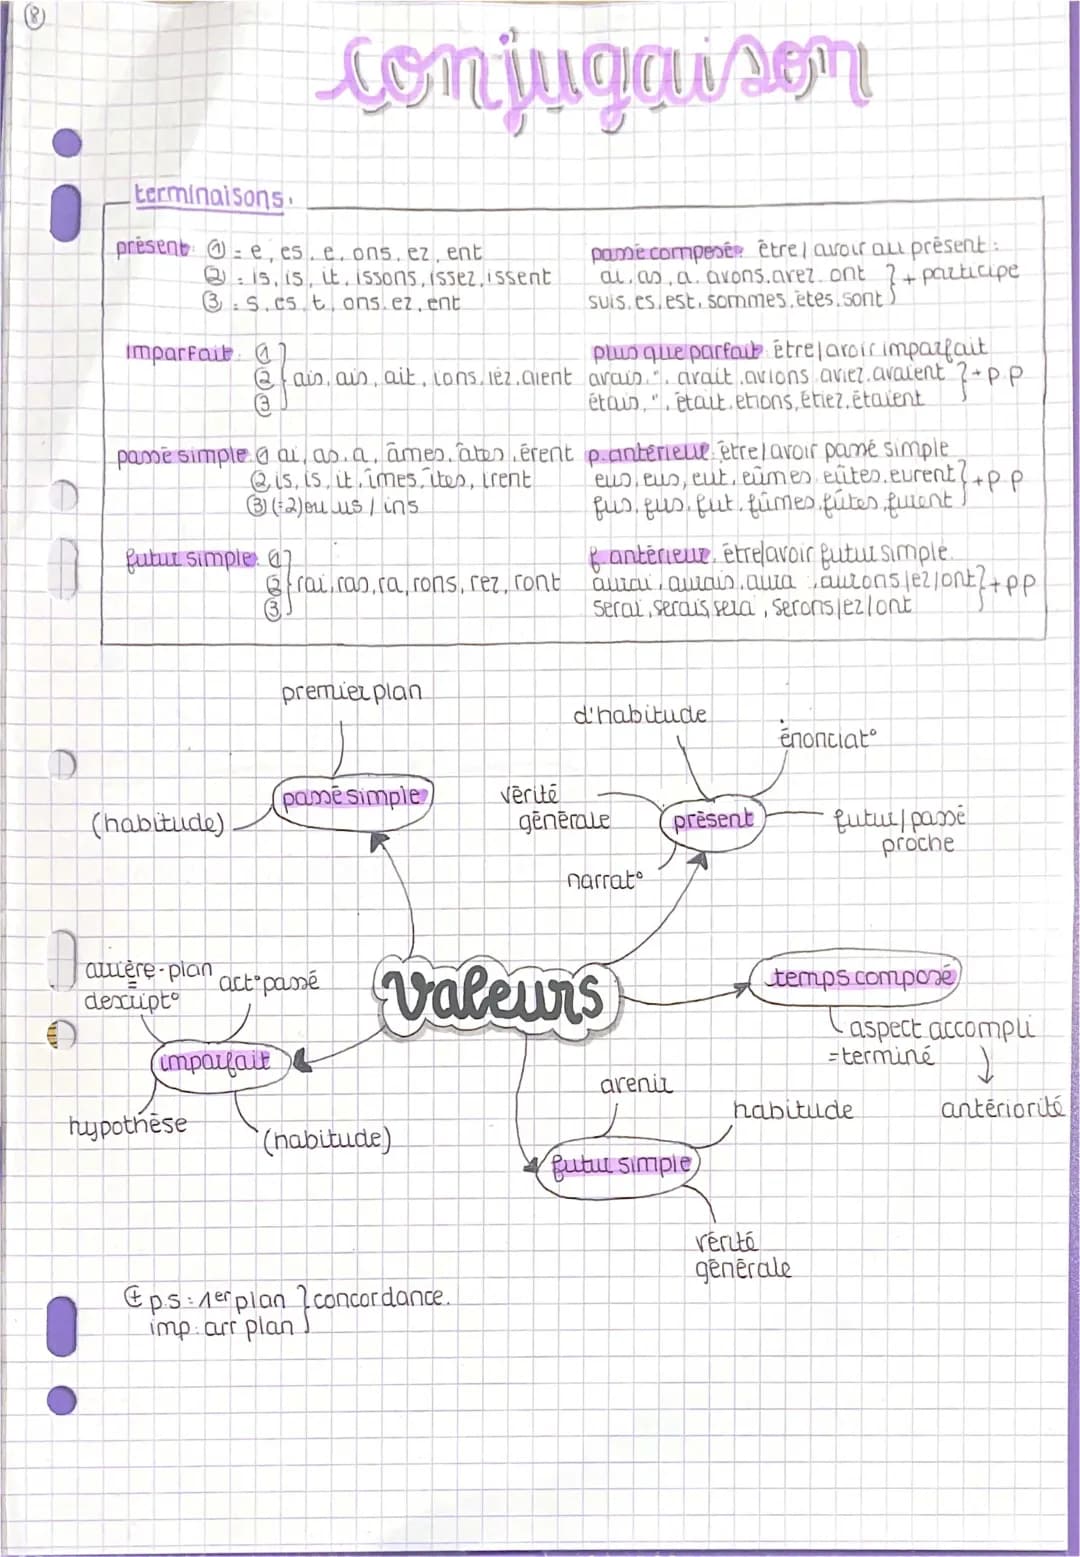 8
conjugaison
terminaisons.
présent: ① = e, es, e, ons, ez, ent
② = is, is, it, issons, issez, issent
③ = s, es, t, ons, ez, ent
passé composé: être/avoir au présent :
ai, as, a, avons, avez, ont } + participe
suis, es, est, sommes, êtes, sont
imparfait: ①
② } ais, ais, ait, ions, iez, aient
③
plus que parfait: être/avoir imparfait
avais, ", avait, avions, aviez, avaient } + p.p
étais, ", était, etions, étiez, étaient
passé simple ① ai, as, a, âmes, âtes, èrent
② is, is, it, îmes, îtes, irent
③ (=2) ou us / ins
p. antérieur: être/avoir passé simple
eus, eus, eut, eûmes, eûtes, eurent } + p p
fus, fus, fut, fûmes, fûtes, furent
futur simple: ①
② } rai, ras, ra, rons, rez, ront
③
f. antérieur, être/avoir futur simple.
aurai, aurais, aura, aurons/ez/ont } + pp
serai, serais, sera, serons/ez/ont
premier plan
passé simple
(habitude)
d'habitude
énonciat°
vérité
générale
présent
futur/passé
proche
narrat°
valeurs
arrière-plan
=
descript°
act° passé
imparfait
hypothèse
(habitude)
temps composé
aspect accompli
= terminé
antériorité
avenir
habitude
futur simple
vérité
générale
⊕ p.s : 1er plan } concordance.
imp : arr plan